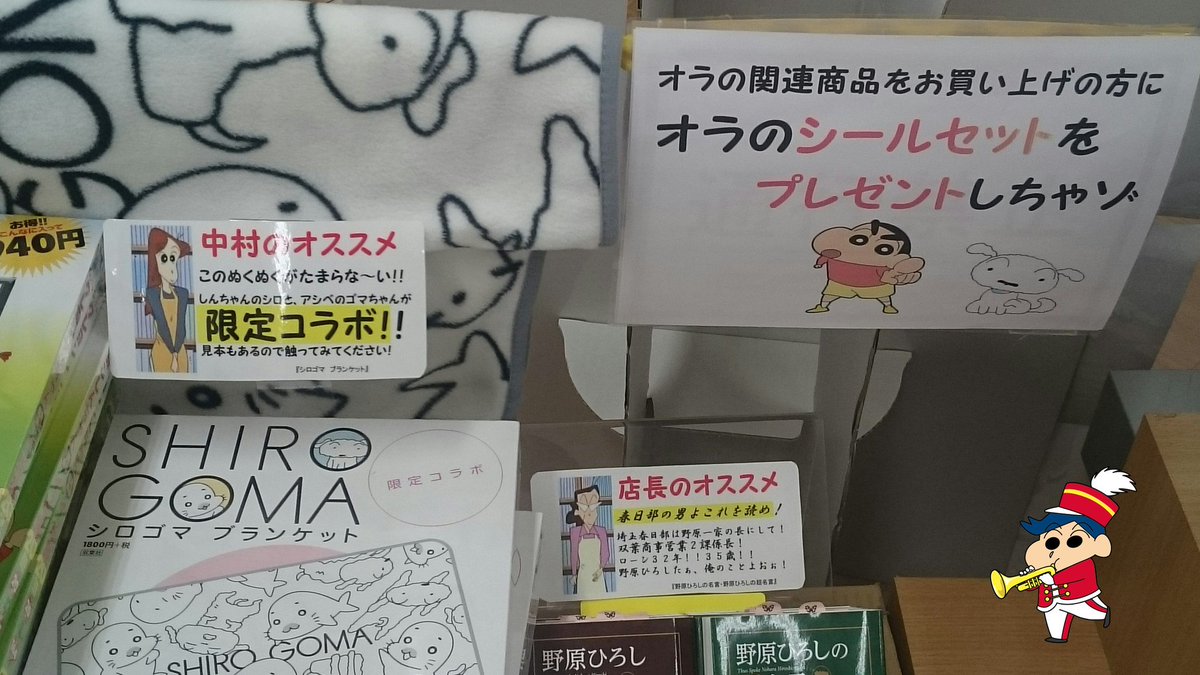 オラの関連商品をお買い上げの方に
オラのシールセットを
プレゼントしちゃゾ
お得!!
こんなに入って
940円
中村のオススメ
このぬくぬくがたまらな〜い!!
しんちゃんのシロと、アシベのゴマちゃんが
限定コラボ!!
見本もあるので触ってみてください!
『シロゴマ ブランケット』
SHIRO
GOMA
シロゴマ ブランケット
1800円+税
双葉社
限定コラボ
SHIRO GOMA
店長のオススメ
春日部の男よこれを読め!
埼玉春日部は野原一家の長にして!
双葉商事営業2課係長!
ローン32年!!35歳!!
野原ひろしたぁ、俺のことよおぉ!
『野原ひろしの名言・野原ひろしの超名言』
野原ひろし
野原ひろしの